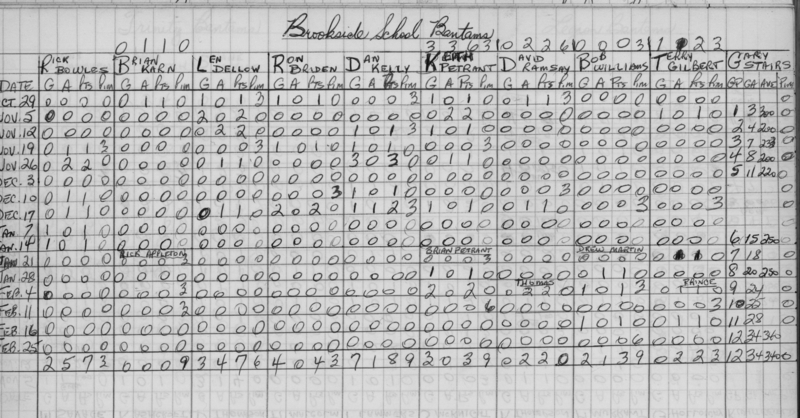 Brookside School Bantams
0 1 1 0 3 3 6 3 0 2 2 6 0 0 0 3 2 3
RICK BRIAN LEN RON DAN KEITH DAVID BOB TERRY GARY
BOWLES KARN DELLOW BRIDEN KELLY PETRANT RAMSAY WILLIAMS GILBERT STAIRS
DATE G A Pts Pim G A Pts Pim G A Pts Pim G A Pts Pim G A Pts Pim G A Pts Pim G A Pts Pim G A Pts Pim G A Pts Pim GP GA AVE Pim
OCT. 29 0 0 0 0 0 1 1 0 1 0 1 3 1 0 1 0 0 0 0 3 1 0 1 0 0 1 1 3 0 0 0 0 0 0 0 0
NOV. 5 0 0 0 0 0 0 0 0 2 0 2 0 0 0 0 0 0 0 0 0 0 2 2 0 0 0 0 0 0 0 0 0 1 0 1 0 1 3 300
NOV. 12 0 0 0 0 0 0 0 0 0 2 2 0 0 0 0 0 1 0 1 3 1 0 1 0 0 0 0 0 0 0 0 0 0 0 0 0 2 4 200
NOV. 19 0 1 1 3 0 0 0 0 0 0 0 3 1 0 1 0 1 0 1 0 0 0 0 3 0 0 0 0 0 0 0 0 0 0 0 0 3 7 233
NOV. 26 0 2 2 0 0 0 0 0 0 1 1 0 0 0 0 0 3 0 3 0 0 1 1 0 0 0 0 0 0 0 0 0 0 0 0 0 4 8 200
DEC. 3 0 0 0 0 0 0 0 0 0 0 0 0 0 0 0 0 0 0 0 0 0 0 0 0 0 0 0 0 0 0 0 0 0 0 0 0 5 11 220
DEC. 10 0 1 1 0 0 0 0 0 0 0 0 0 0 0 0 3 1 0 1 0 0 0 0 0 0 0 0 3 0 0 0 0 0 0 0 0
DEC. 17 0 1 1 0 0 0 0 0 0 1 1 0 2 0 2 0 1 1 2 3 1 0 1 0 0 1 1 0 0 0 0 3 0 0 0 3
JAN. 7 1 0 1 0 0 0 0 0 0 0 0 0 0 0 0 0 0 0 0 0 0 0 0 0 0 0 0 0 0 0 0 0 0 0 0 0
JAN. 14 1 0 1 0 0 0 0 0 0 0 0 0 0 0 0 0 0 0 0 0 0 0 0 0 0 0 0 0 0 0 0 0 0 0 0 0 6 15 250
RICK APPLETON BRIAN PETRANT DREW MARTIN
JAN. 21 0 0 0 0 0 0 0 3 0 0 0 0 0 0 0 0 0 0 0 0 0 0 0 3 0 0 0 0 0 0 0 0 0 1 1 0 7 18
JAN. 28 0 0 0 0 0 0 0 0 0 0 0 0 0 0 0 0 0 0 0 0 1 0 1 0 0 0 0 0 0 1 1 0 0 0 0 0 8 20 250
THOMAS PRINCE
FEB. 4 0 0 0 0 0 0 0 3 0 0 0 0 0 0 0 0 0 0 0 0 2 0 2 0 0 2 2 0 1 0 1 3 0 1 1 0 9 24
FEB. 11 0 0 0 0 0 0 0 3 0 0 0 0 0 0 0 0 0 0 0 0 0 0 0 6 0 0 0 0 0 0 0 0 0 0 0 3 10 25
FEB. 16 0 0 0 0 0 0 0 0 0 0 0 0 0 0 0 0 0 0 0 0 0 0 0 0 0 0 0 0 1 0 1 0 0 1 1 0 11 28
FEB. 25 0 0 0 0 0 0 0 0 0 0 0 0 0 0 0 0 0 0 0 0 0 0 0 0 0 0 0 0 0 0 0 6 0 0 0 0 12 34 360
2 5 7 3 0 0 0 9 3 4 7 6 4 0 4 3 7 1 8 9 3 0 3 9 0 2 2 0 2 1 3 9 0 2 2 3 12 34 340 0